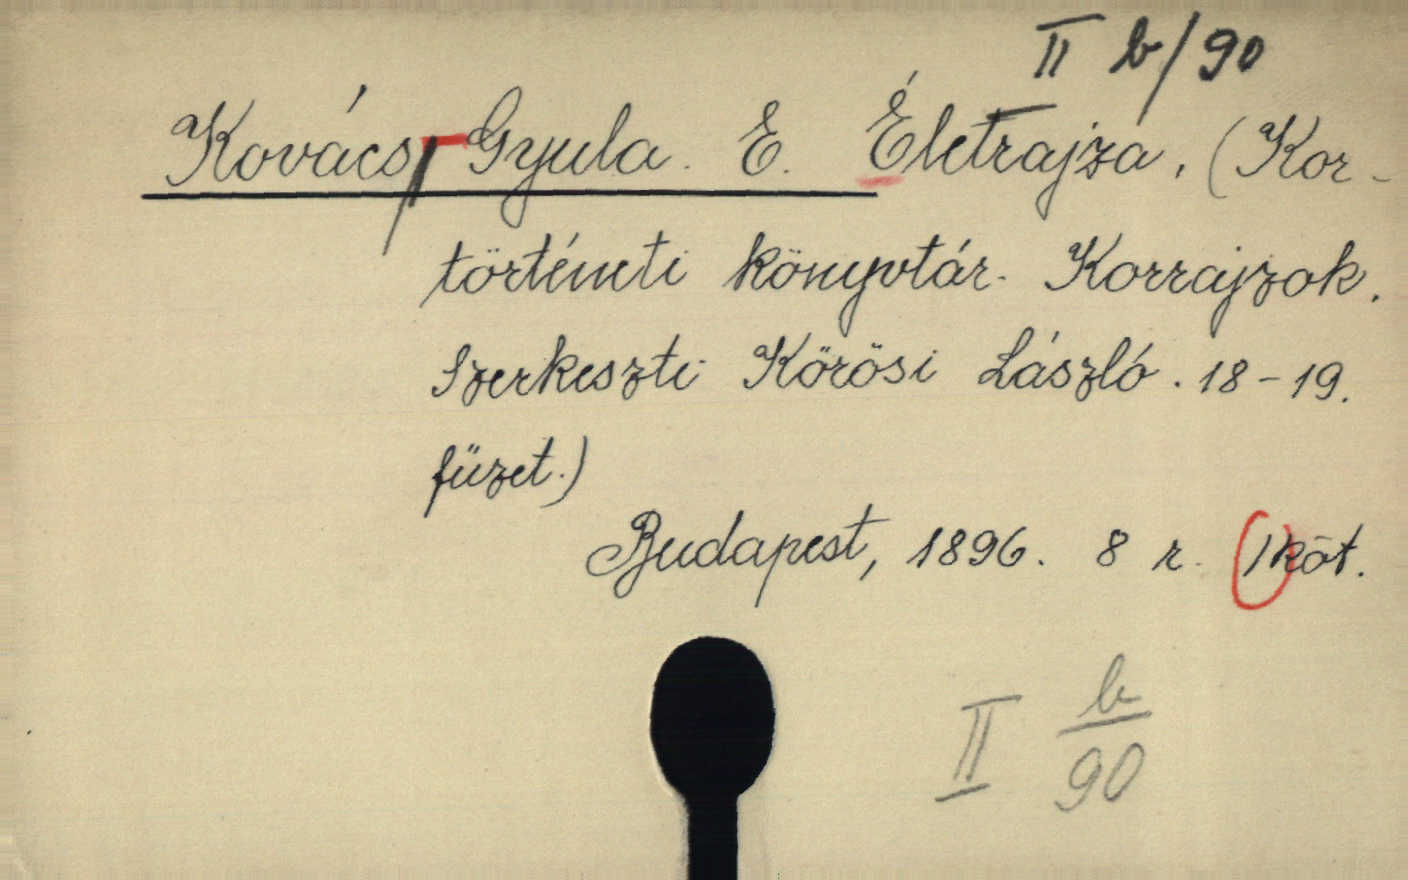 II b/90
Kovács, Gyula. E. Életrajza, (Kor-
történeti könyvtár. Korrajzok.
Szerkeszti Kőrösi László. 18-19.
füzet.)
Budapest, 1896. 8 r. (1) köt.
II b/90